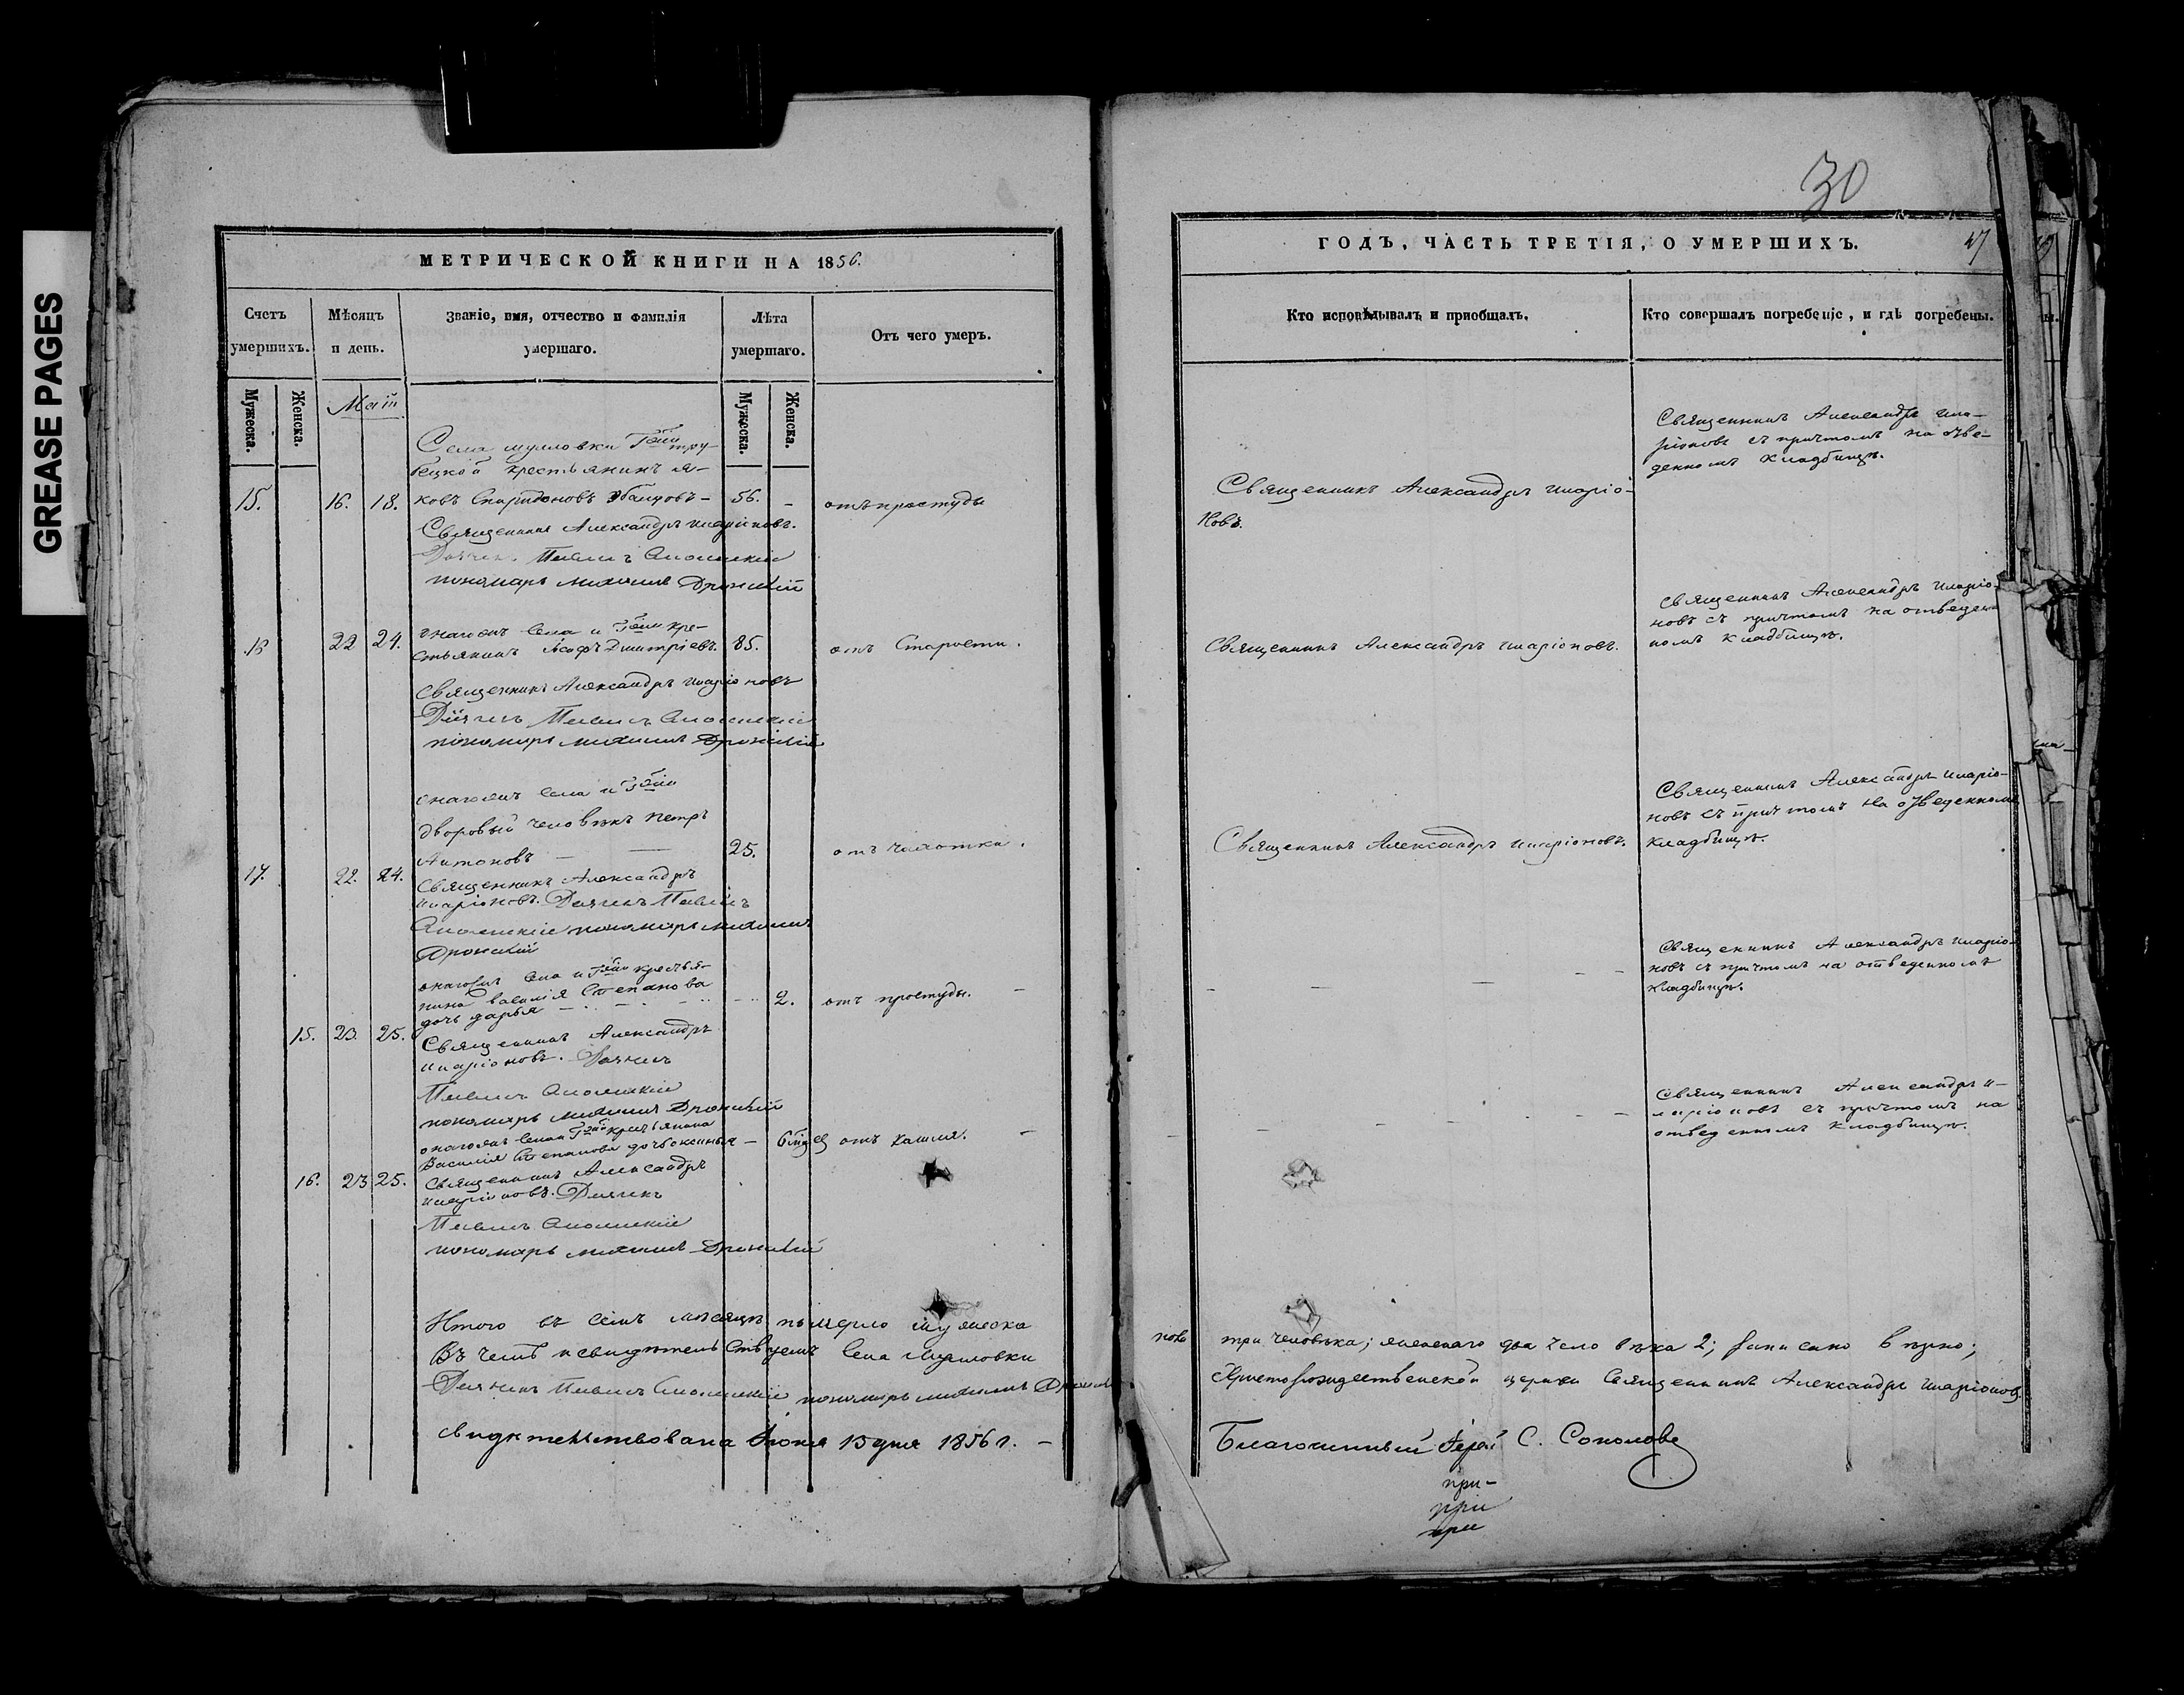 GREASE PAGES
МЕТРИЧЕСКОЙ КНИГИ НА 1856.
Счетъ умершихъ.
Мѣсяцъ и день.
Званіе, имя, отчество и фамилія умершаго.
Лѣта умершаго.
Отъ чего умеръ.
Мужеска.
Женска.
Маій
Мужеска.
Женска.
Села
крестьянинъ я-
15. 16. 18. ковъ Спиридоновъ 56. – отъ простуды
Священникъ Александръ иларіоновъ.
Дьячекъ Павелъ
пономарь михаилъ
онагожъ села и кре-
16 22 24. стьянинъ Дмитріевъ. 85. отъ Старости.
Священникъ Александръ иларіоновъ
Дьячекъ Павелъ
пономарь михаилъ
онагожъ села и
дворовый человѣкъ петръ
Антоновъ — — 25. отъ чахотки.
17. 22. 24. Священникъ Александръ
иларіоновъ. Дьячекъ Павелъ
пономарь михаилъ
онагожъ села и крестья-
нина василія Степанова
дочь дарья – 2. отъ простуды. –
15. 23. 25. Священникъ Александръ
иларіоновъ. Дьячекъ
Павелъ
пономарь михаилъ
онагожъ села и крестьянина
Василія Степанова дочь аксинья – отъ кашля. –
16. 23 25. Священникъ Александръ
иларіоновъ. Дьячекъ
Павелъ
пономарь михаилъ
Итого въ семъ мѣсяцѣ померло мужеска
Въ чемъ и свидѣтельствуемъ села
Дьячекъ Павелъ пономарь михаилъ
свидѣтельствована Іюня 15 дня 1856 г. –
30
ГОДЪ, ЧАСТЬ ТРЕТІЯ, О УМЕРШИХЪ.
47
Кто исповѣдывалъ и приобщалъ.
Кто совершалъ погребеніе, и гдѣ погребены.
Священникъ Александръ ила-
ріоновъ съ причтомъ на отве-
денномъ кладбищѣ.
Священникъ Александръ иларіо-
новъ.
Священникъ Александръ иларіо-
новъ съ причтомъ на отведен
номъ кладбищѣ.
Священникъ Александръ иларіоновъ.
Священникъ Александръ иларіо-
новъ съ причтомъ на отведенномъ
кладбищѣ.
Священникъ Александръ иларіоновъ.
Священникъ Александръ иларіо-
новъ съ причтомъ на отведенномъ
кладбищѣ.
Священникъ Александръ и-
ларіоновъ съ причтомъ на
отведенномъ кладбищѣ.
пола три человѣка; женскаго два человѣка 2; записано вѣрно;
Христорождественской церкви Священникъ Александръ иларіоновъ
Благочинный Іерей С. Соколовъ
при-
при
при